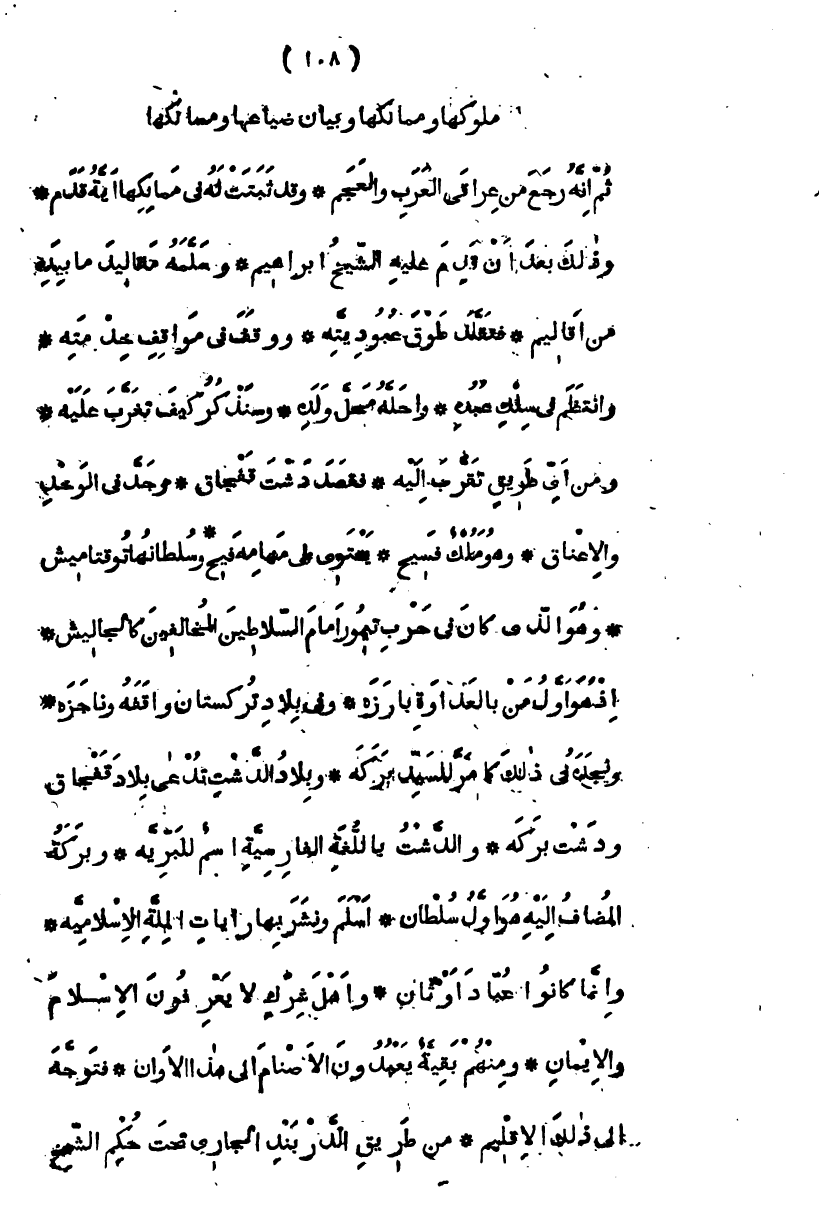 ( ١٠٨ )
ملوكها وممالكها وبيان ضياعها ومسالكها
ثُمَّ اِنَّهُ رَجَعَ مَن عِراقَى العَرَبِ والعَجَمِ * وقد ثَبَتَتْ لَهُ فى مَمالِكِها اَيَّةُ قَدَم *
وذٰلكَ بعدَ اَنْ قَدِمَ عليهِ الشَّيخُ ابراهيم * وسَلَّمَهُ مَقاليدَ ما بِيَدِهِ
مَن اَقاليم * فتقلَّد طَوْقَ عُبُودِيتِّه * ووقفَ فى مَواقِفِ خِدْمَتِه *
وانتظَم فى سِلْكِ عبيدِه * واحلَهُ مَحلَّ ولَدِه * وسنَذْكُرُ كيفَ تغرَّبَ عَلَيْه *
ومن اَىِّ طَرِيقٍ تقَرَّبَ اِلَيْه * فقصَدَ دَشْتَ قَفْجاق * وجَدَّ فى الوَخْدِ
والاِعْناق * وهو مُلْكٌ فَسيح * يَحْتَوِى على مَهامِه فِيح * وسُلطانُها تُوقتاميش
* وهُوَ الّذى كانَ فى حَرْبِ تيمُور اَمامَ السَّلاطينَ المُخالفِينَ كالجاليش *
اِذْ هُوَ اَوَّلُ مَنْ بالعَداوَةِ بارَزَه * وفى بِلادِ تُركستان واقَفَهُ وناجَزَه *
ونَجَدَه فى ذٰلكَ كما مَرَّ السَّيِّد بَرَكَه * وبِلادُ الدَّشْتِ تُدْعٰى بلادَ قَفْجاق
ودَشْت بَركَه * والدَّشْتُ باللُّغَةِ الفارِسيَّةِ اسمٌ للبَرِّيَّه * وبركَةُ
المُضافُ اِلَيْهِ هُوَ اَوَّلُ سُلْطان * اَسْلَمَ ونشَرَ بِها راياتِ المِلَّةِ الاِسْلاميَّه *
وانَّما كانوُا عُبّادَ اَوْثان * واَهْلَ شِرْكٍ لا يَعْرِفُونَ الاِسْلامَ
والاِيْمان * ومِنْهُمْ بَقِيَّةٌ يَعْبُدُونَ الاَصْنامَ الى هٰذا الاَوان * فتَوجَّهَ
الى ذٰلكَ الاِقْليم * مِن طَرِيقِ الدَّرْبَنْدِ الجارى تحتَ حُكْمِ الشَّيخ